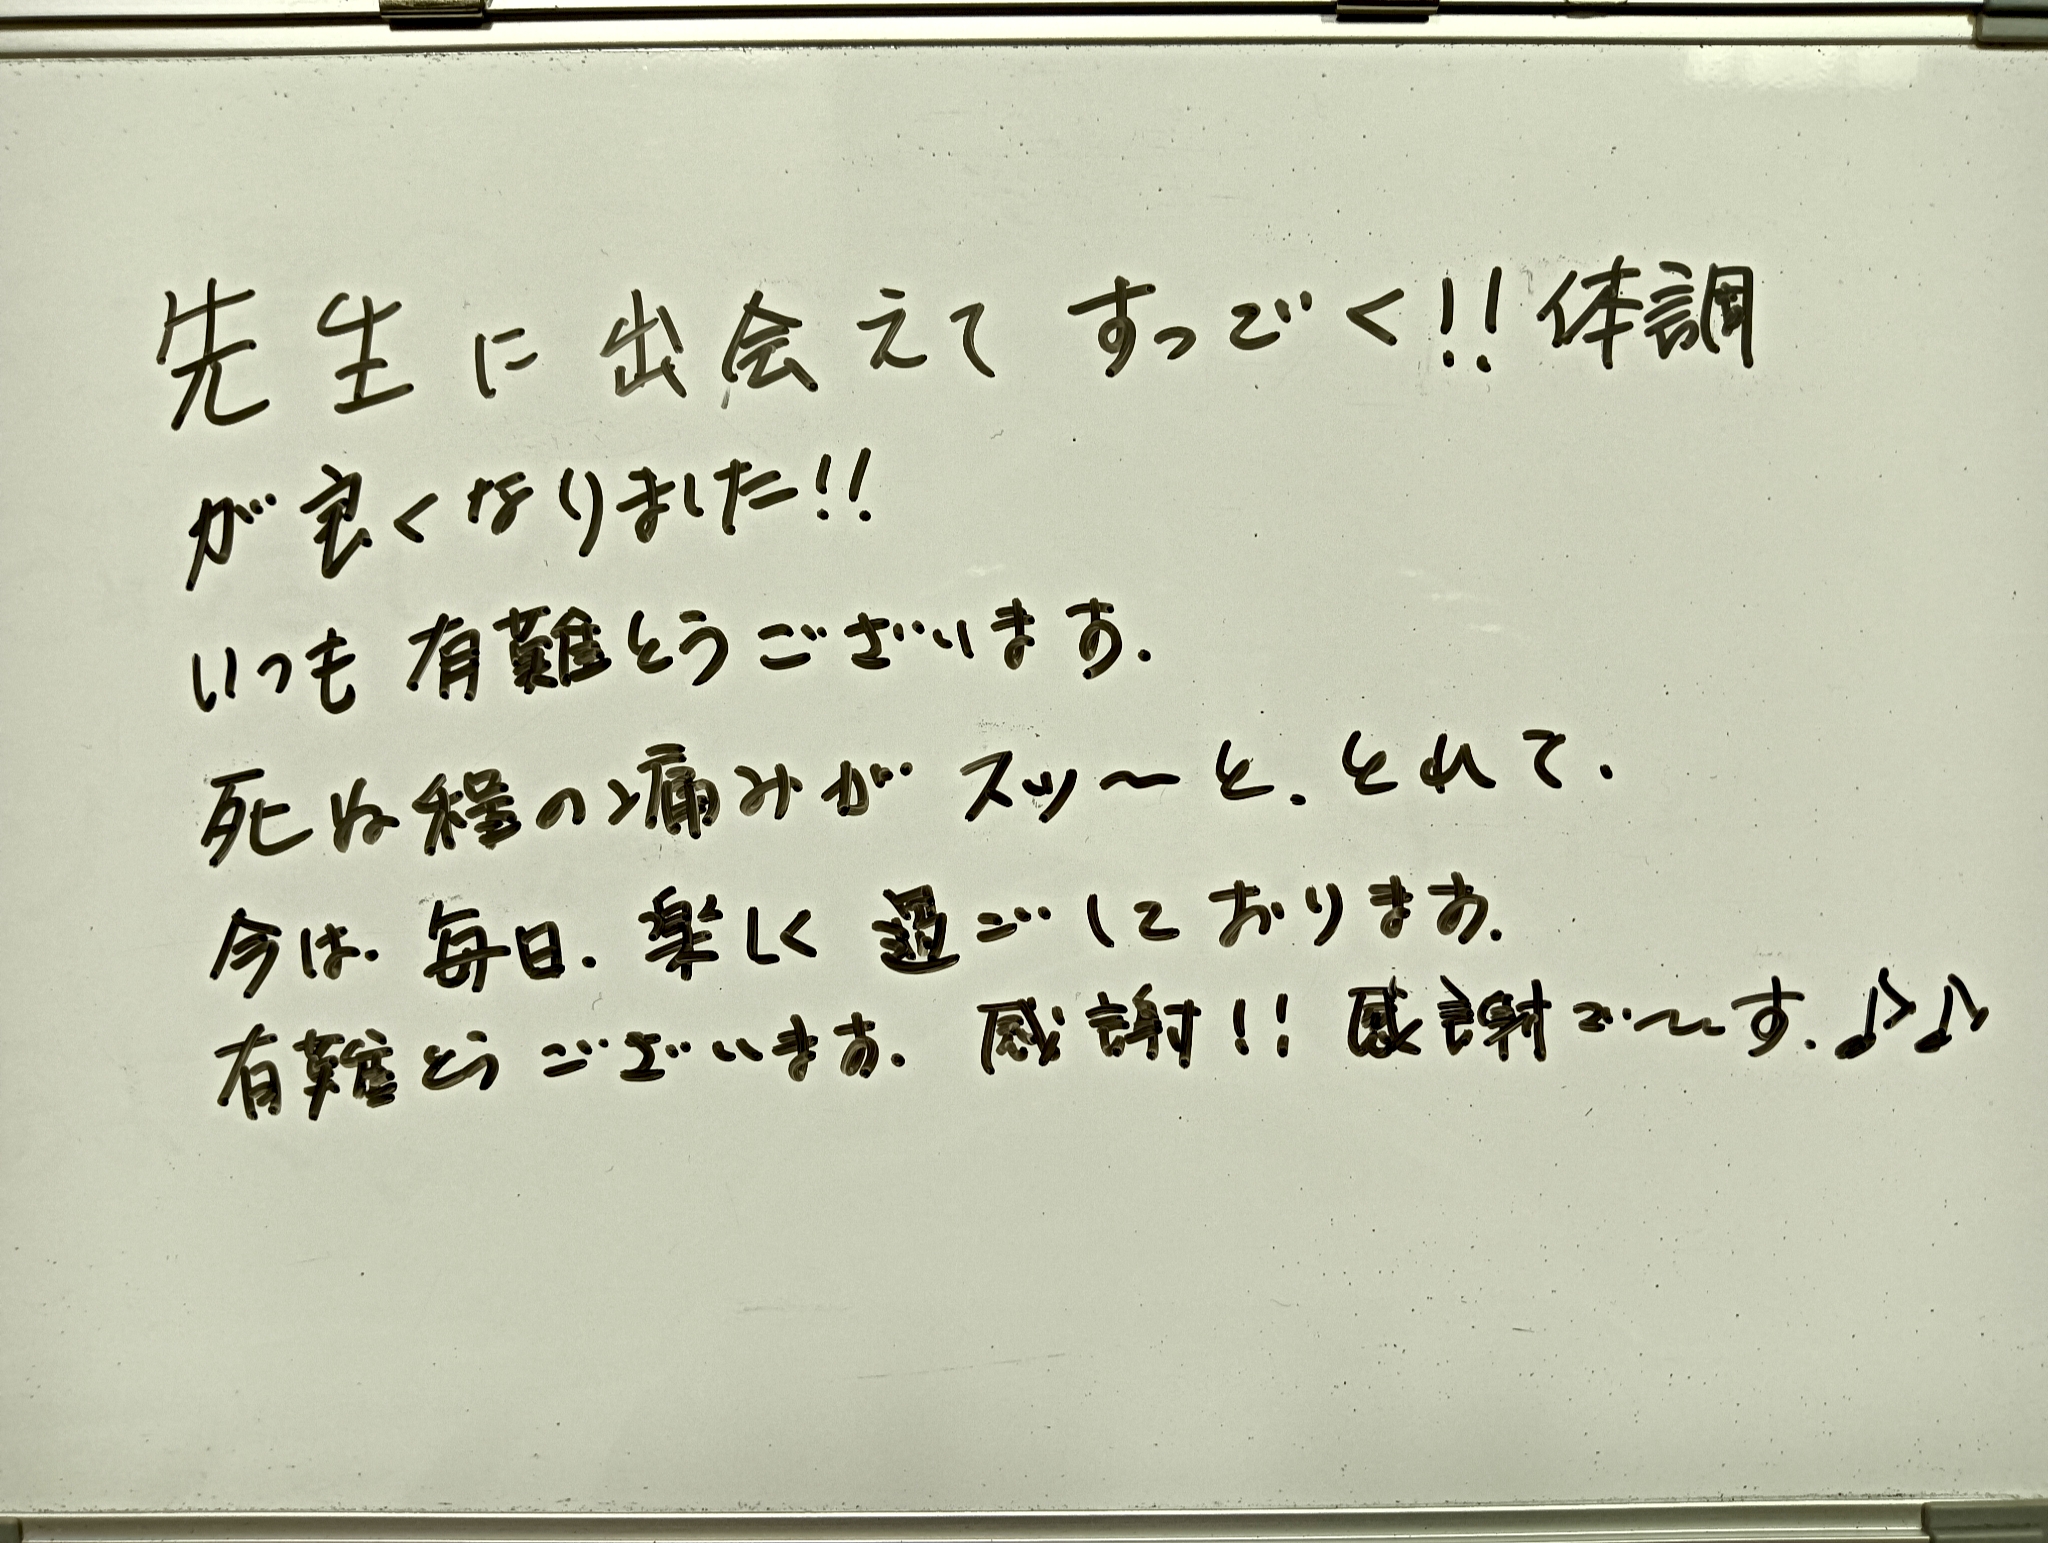 先生に出会えてすっごく!!体調
が良くなりました!!
いつも有難とうございます.
死ぬ程の痛みがスッ〜と.とれて.
今は.毎日.楽しく過ごしております.
有難とうございます.感謝!!感謝で〜す.♪♪